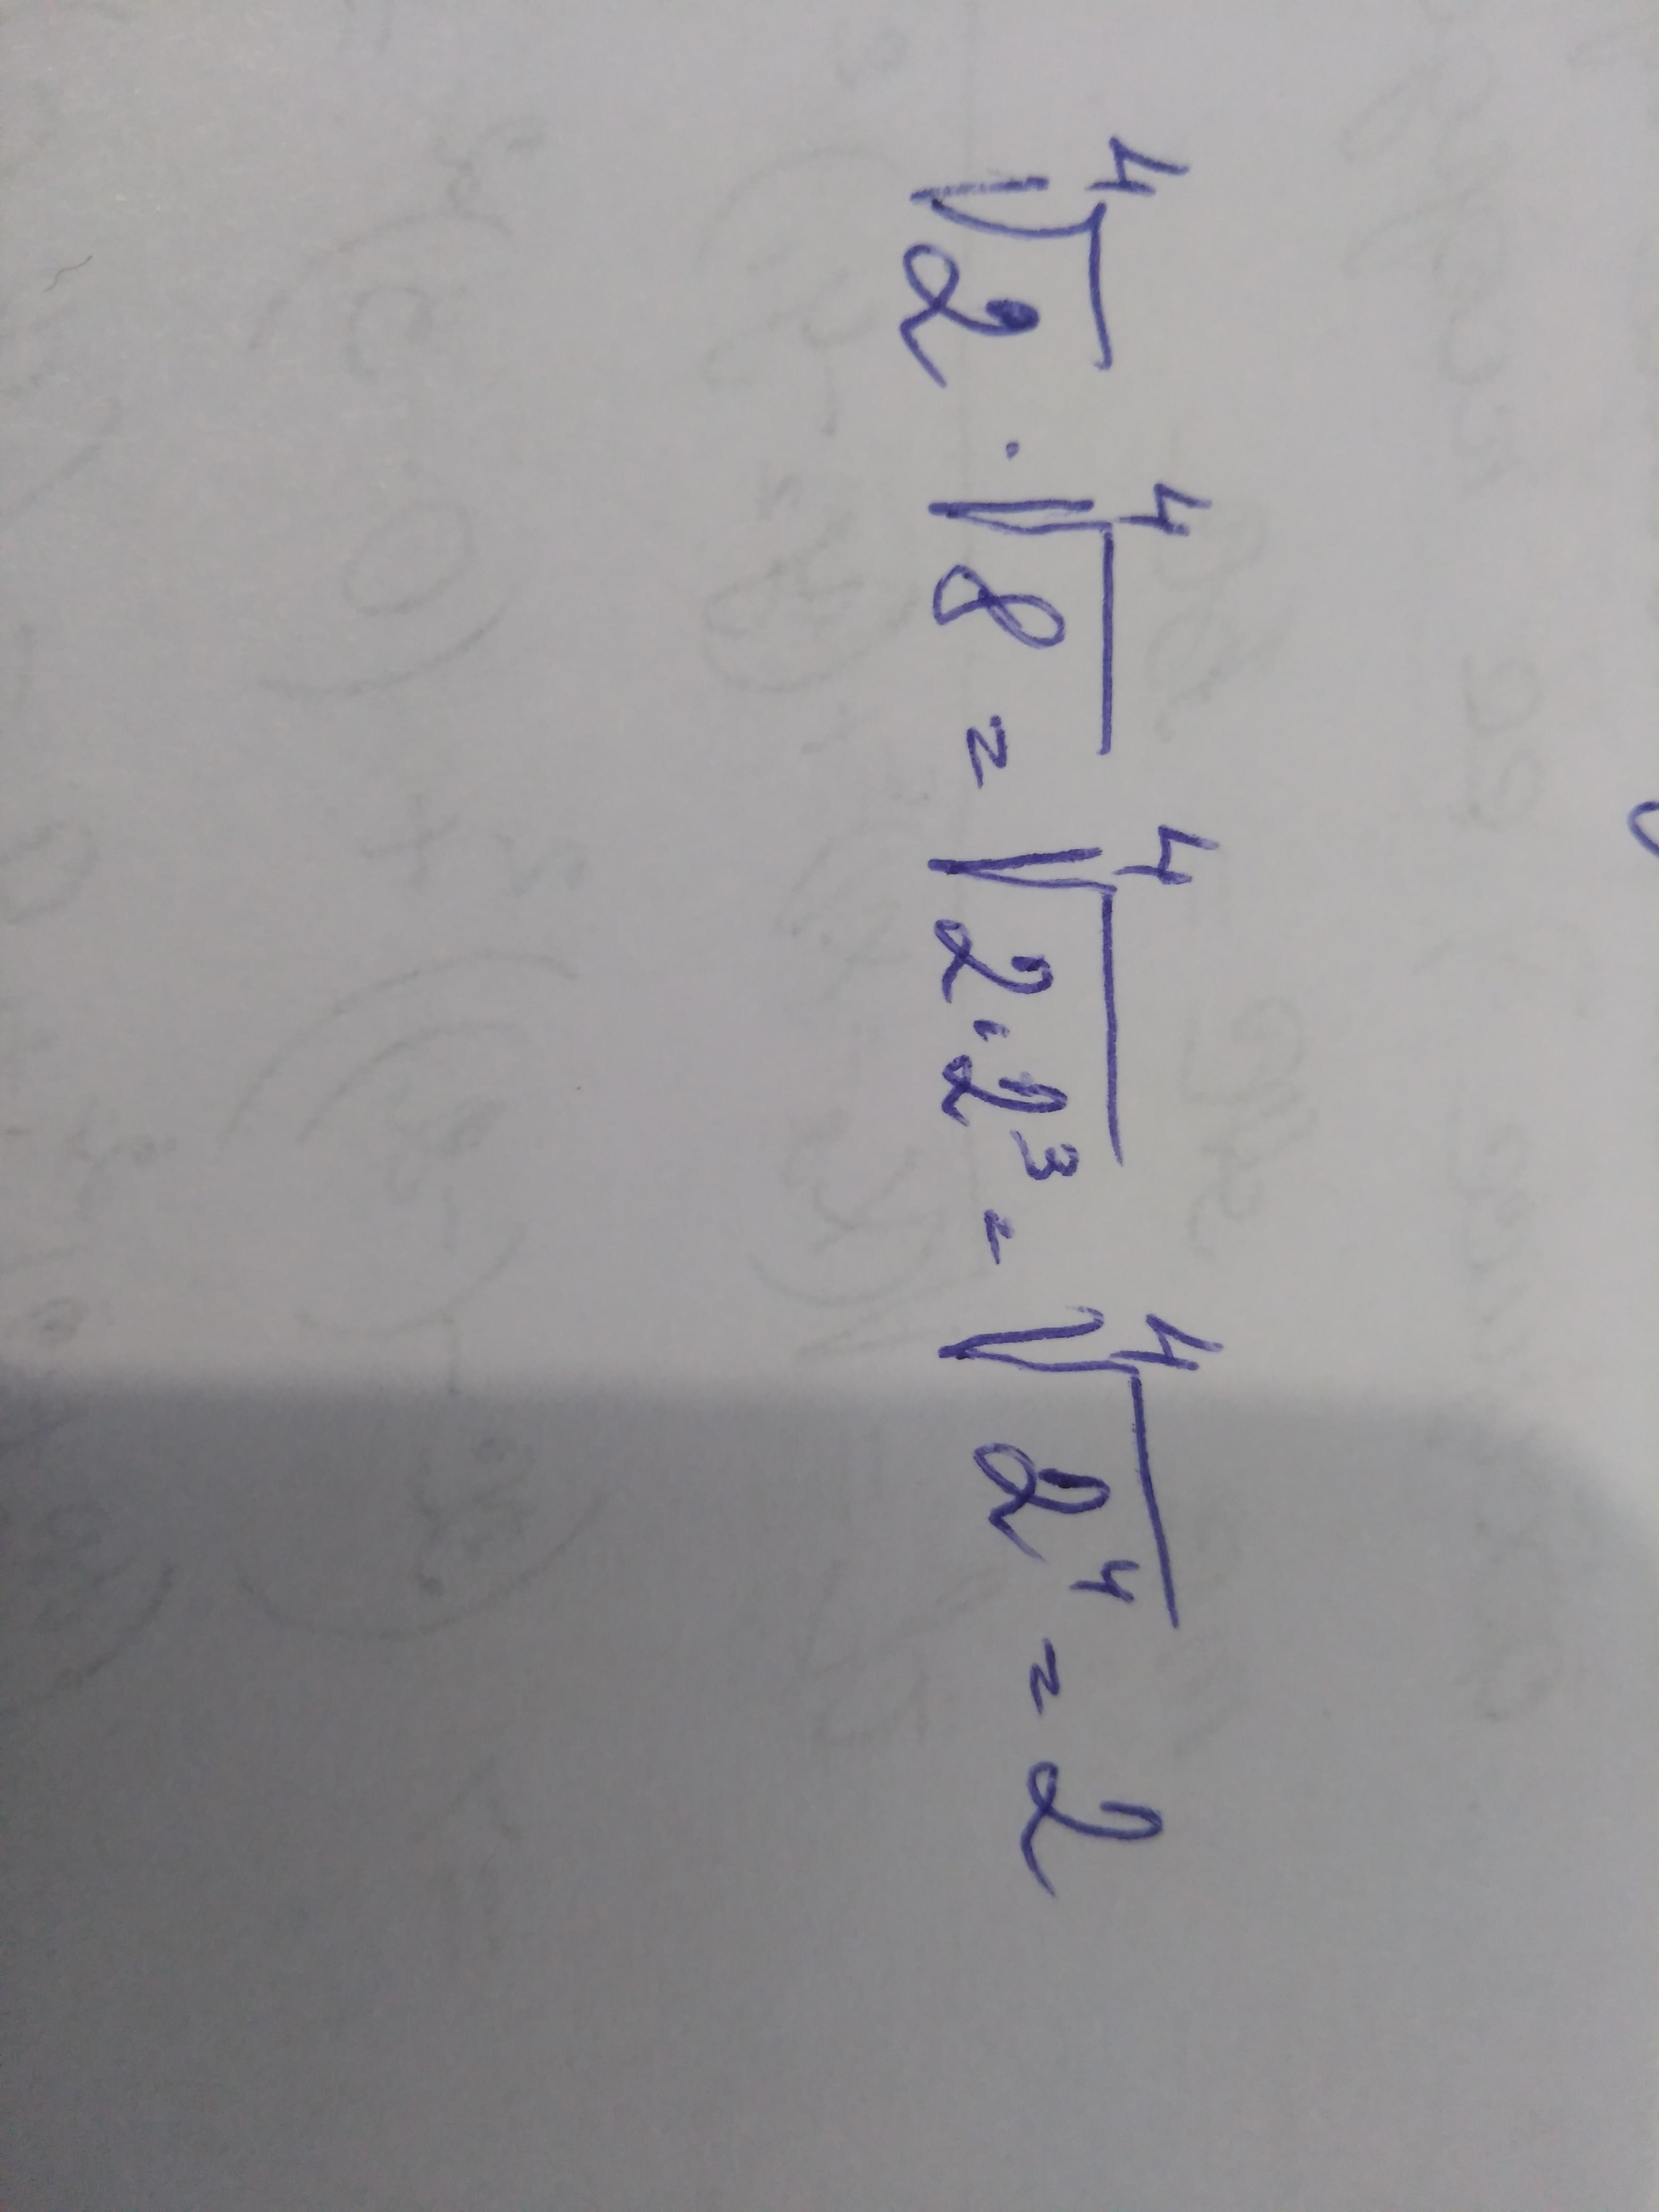 ⁴√2 · ⁴√8 = ⁴√2·2³ = ⁴√2⁴ = 2